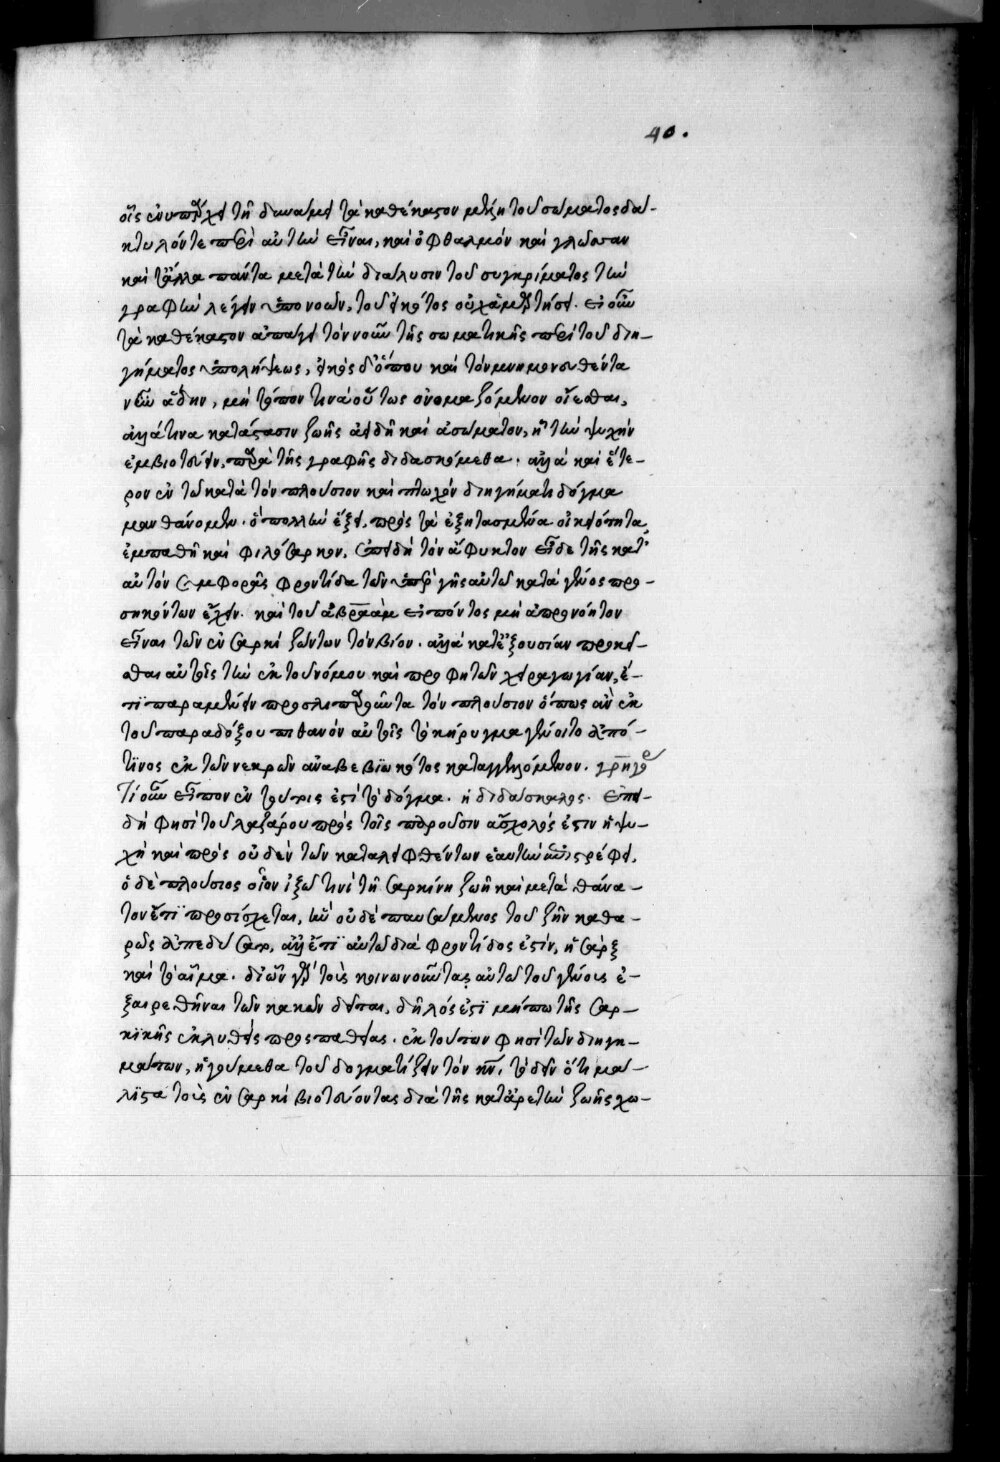 40.
οἷς ἐνυπάρχει τῇ δυνάμει τὰ καθέκαστον μέρη τοῦ σώματος δα-
κτυλόν τε περὶ αὐτὴν εἶναι, καὶ ὀφθαλμὸν καὶ γλῶσσαν
καὶ τἄλλα πάντα μετὰ τὴν διάλυσιν τοῦ συγκρίματος τὴν
γραφὴν λέγειν ὑπονοῶν, τοῦ εἰκότος οὐχ ἁμαρτήσει. εἰ οὖν
τὰ καθέκαστον ἀπάγει τὸν νοῦν τῆς σωματικῆς περὶ τοῦ διη-
γήματος ὑπολήψεως, εἰκὸς δήπου καὶ τὸν μνημονευθέντα
νῦν ἅδην, μὴ τόπον τινὰ οὕτως ὀνομαζόμενον οἴεσθαι,
ἀλλά τινα κατάστασιν ζωῆς ἀειδῆ καὶ ἀσώματον, ἧ τὴν ψυχὴν
ἐμβιοτεύειν, παρὰ τῆς γραφῆς διδασκόμεθα. ἀλλὰ καὶ ἕτε-
ρον ἐν τῷ κατὰ τὸν πλούσιον καὶ πτωχὸν διηγήματι δόγμα
μανθάνομεν. ὃ πολλὴν ἕξει, πρὸς τὰ ἐξητασμένα οἰκειότητα,
ἐμπαθῆ καὶ φιλόσαρκον, ἐπειδὴ τὸν ἄφυκτον εἶδε τῆς κατ'
αὐτὸν συμφορᾶς φροντίδα τῶν ὑπὲρ γῆς αὐτῷ κατὰ γένος προ-
σηκόντων ἔχειν. καὶ τοῦ ἀβραὰμ εἰπόντος μὴ ἀπρονόητον
εἶναι τῶν ἐν σαρκὶ ζώντων τὸν βίον. ἀλλὰ κατ' ἐξουσίαν προκεῖ-
σθαι αὐτοῖς τὴν ἐκ τοῦ νόμου καὶ προφητῶν χειραγωγίαν, ἔ-
τι παραμένειν προσλιπαροῦντα τὸν πλούσιον ὅπως ἂν ἐκ
τοῦ παραδόξου πιθανὸν αὐτοῖς τὸ κήρυγμα γένοιτο ἀπό-
τινος ἐκ τῶν νεκρῶν ἀναβεβιωκότος καταγγελόμενον. γρηγό
Τί οὖν εἶπον ἐν τούτοις ἐστὶ τὸ δόγμα. ἡ διδάσκαλος. ἐπει-
δή φησὶ τοῦ λαζάρου πρὸς τοῖς παροῦσιν ἄσχολός ἐστιν ἡ ψυ-
χὴ καὶ πρὸς οὐδὲν τῶν καταλειφθέντων ἑαυτὴν ἐπιστρέφει,
ὁ δὲ πλούσιος οἷον ἰξῷ τινι τῇ σαρκίνῃ ζωῇ καὶ μετὰ θάνα-
τον ἔτι προσίσχεται, ἣν οὐδὲ παυσάμενος τοῦ ζῆν καθα-
ρῶς ἀπεδύσατο, ἀλλ' ἔτι αὐτῷ διὰ φροντίδος ἐστίν, ἡ σὰρξ
καὶ τὸ αἷμα. δι' ὧν γὰρ τοὺς κοινωνοῦντας αὐτῷ τοῦ γένους ἐ-
ξαιρεθῆναι τῶν κακῶν δεῖται, δῆλός ἐστι μήπω τῆς σαρ-
κικῆς ἐκλυθεὶς προσπαθείας. ἐκ τούτων φησὶ τῶν διηγη-
μάτων, ἡγούμεθα τοῦ δογματίζειν τὸν κν, τὸ δεῖν ὅτι μά-
λιστα τοὺς ἐν σαρκὶ βιοτεύοντας διὰ τῆς κατ' ἀρετὴν ζωῆς χω-